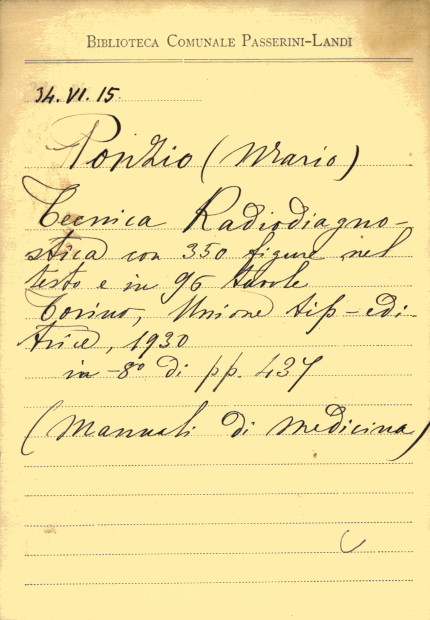 BIBLIOTECA COMUNALE PASSERINI-LANDI
34.VI.15.
Ponzio (Mario)
Tecnica Radiodiagno-
stica con 350 figure nel
testo e in 96 tavole
Torino, Unione tip-edi-
trice, 1930
in -8º di pp. 437
(Manuali di medicina)